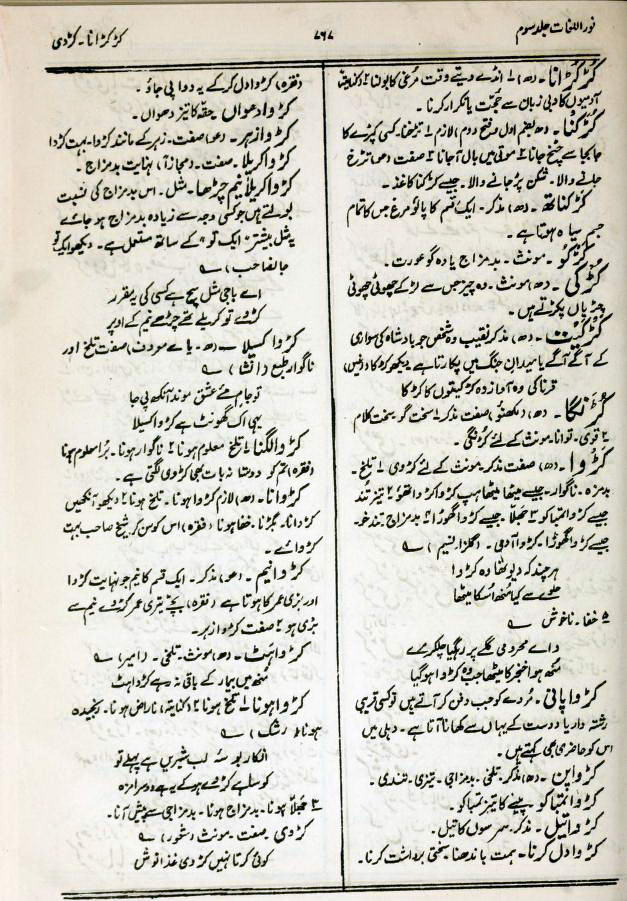 نور اللغات جلد سوم
۷۶۷
کڑکڑانا ۔ کڑدی
کُڑکُڑانا ۔ (ھ) ۱ انڈے دیتے وقت مرغی کا بولنا ۲ (کنایۃً)
آدمیوں کا دبی زبان سے حجت یا تکرار کرنا۔
کُڑکنا ۔ (ھ بضم اول و فتح دوم) لازم ۱ تڑخنا۔ کسی کپڑے کا
جابجا سے چیخ جانا ۲ موتی میں بال آجانا ۳ صفت (عو) تڑخ
جانے والا۔ شکن پڑ جانے والا۔ جیسے کڑکنا کاغذ۔
کڑکناتھ ۔ (ھ) مذکر۔ ایک قسم کا پالو مرغ جس کا تمام
جسم سیاہ ہوتا ہے۔
کڑکو ۔ مونث۔ بدمزاج یا وہ گو عورت۔
کڑکی ۔ (ھ) مونث۔ وہ چیز جس سے لڑکے چھوٹی چھوٹی
چڑیاں پکڑتے ہیں۔
کڑکیت ۔ (ھ) مذکر۔ نقیب وہ شخص جو بادشاہ کی سواری
کے آگے آگے یا میدان جنگ میں پکارتا ہے دیکھو کڑکا
قرنا کی وہ آواز وہ کڑکیتوں کا کڑکا
کڑنگا ۔ (ھ) (لکھنؤ) صفت مذکر ۱ سخت گو سخت کلام
۲ قوی۔ توانا۔ مونث کے لئے کڑنگی۔
کڑوا ۔ (ھ) صفت مذکر۔ مونث کے لئے کڑوی ۱ تلخ۔
بدمزہ۔ ناگوار۔ جیسے میٹھا میٹھا ہپ کڑوا کڑوا تھو ۲ تیز تُند
جیسے کڑوا تمباکو ۳ جھلّا۔ جیسے کڑوا گھوڑا ۴ بدمزاج۔ تندخو۔
جیسے کڑوا گھوڑا۔ کڑوا آدمی۔ (گلزار نسیم) ؎
ہر چند کہ دیو تھا وہ کڑوا
حلوے سے کیا منھ اُس کا میٹھا
۵ خفا۔ ناخوش ؎
وائے محرومی گلے پر رہ گیا چل کر
منھ ہوا خنجر کا میٹھا جب وہ کڑوا ہو گیا
کڑوا پانی ۔ مُردے کو جب دفن کر آتے ہیں تو کسی قریبی
رشتہ دار یا دوست کے یہاں سے کھانا آتا ہے۔ دہلی میں
اس کو حاضری بھی کہتے ہیں۔
کڑواپن ۔ (ھ) مذکر۔ تلخی۔ بدمزاجی۔ تیزی۔ تندی۔
کڑوا تمباکو ۔ پینے کا تیز تمباکو۔
کڑوا تیل ۔ مذکر۔ سرسوں کا تیل۔
کڑوا دل کرنا ۔ ہمت باندھنا۔ سختی برداشت کرنا۔
(فقرہ) کڑوا دل کرکے یہ دوا پی جاؤ۔
کڑوا دھواں ۔ حقہ کا تیز دھواں۔
کڑوا زہر ۔ (عو) صفت۔ زہر کے مانند کڑوا۔ بہت کڑوا
کڑوا کریلا ۔ صفت۔ (مجازاً) نہایت بدمزاج۔
کڑوا کریلا نیم چڑھا ۔ مثل۔ اس بدمزاج کی نسبت
بولتے ہیں جو کسی وجہ سے زیادہ بدمزاج ہو جائے
یہ مثل بیشتر "ایک تو" کے ساتھ مستعمل ہے۔ دیکھو ایک تو
(جانصاحب) ؎
اے باجی مثل سچ ہے کسی کی یہ مقرر
کڑوے تو کریلے تھے چڑھے نیم کے اوپر
کڑوا کسیلا ۔ (ھ۔ یائے معروف) صفت تلخ اور
ناگوار طبع (انشا) ؎
تو جام مئے عشق موند آنکھ پی جا
یہی اک گھونٹ ہے کڑوا کسیلا
کڑوا لگنا ۱ تلخ معلوم ہونا ۲ ناگوار ہونا۔ بُرا معلوم ہونا
(فقرہ) تم کو دوستانہ بات بھی کڑوی لگتی ہے۔
کڑوانا ۔ (ھ) لازم کڑوا ہونا۔ تلخ ہونا ۲ دیکھو آنکھیں
کڑوانا۔ بگڑنا۔ خفا ہونا (فقرہ) اس کو سن کر شیخ صاحب بہت
کڑوائے۔
کڑوا نیم ۔ (عو) مذکر۔ ایک قسم کا نیم جو نہایت کڑوا
اور بڑی عمر کا ہوتا ہے (فقرہ) بچے تیری عمر کڑوے نیم سے
بڑی ہو ۲ صفت کڑوا زہر۔
کڑواہٹ ۔ (ھ) مونث۔ تلخی۔ (امیر) ؎
منھ میں بیمار کے باقی نہ رہے کڑواہٹ
کڑوا ہونا ۱ تلخ ہونا ۲ (کنایۃً) ناراض ہونا۔ رنجیدہ
ہونا (رشک) ؎
انکار بوسۂ لب شیریں ہے پہلے تو
کوسا بے کڑوے ہو کے یہ ہے دوسرا مزہ
۳ جھلّا ہونا۔ بدمزاج ہونا۔ بدمزاجی سے پیش آنا۔
کڑوی ۔ صفت۔ مونث (شعور) ؎
کوئی کرتا نہیں کڑوی غذا نوش